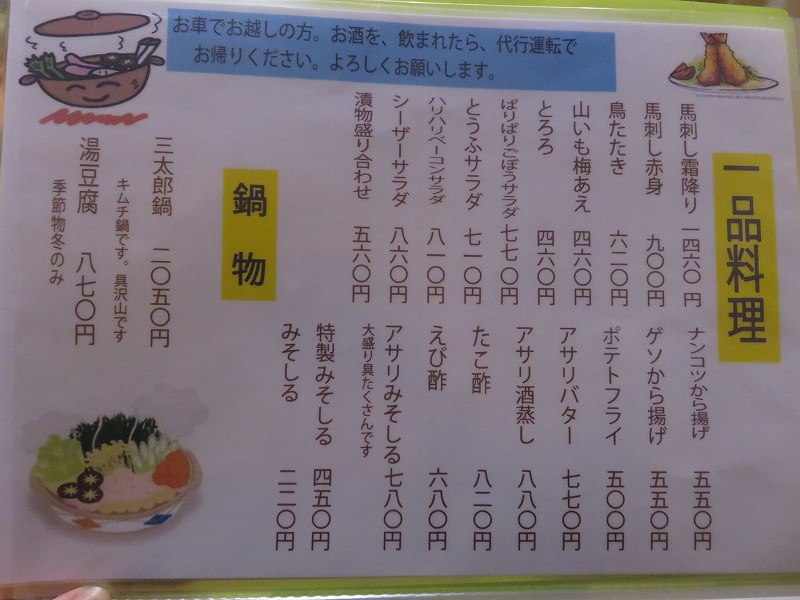 お車でお越しの方。お酒を、飲まれたら、代行運転で
お帰りください。よろしくお願いします。
一品料理
馬刺し霜降り 一四六〇円
馬刺し赤身 九〇〇円
鳥たたき 六二〇円
山いも梅あえ 四六〇円
とろろ 四六〇円
ぱりぱりごぼうサラダ 七七〇円
とうふサラダ 七一〇円
ハリハリベーコンサラダ 八一〇円
シーザーサラダ 八六〇円
漬物盛り合わせ 五六〇円
ナンコツから揚げ 五五〇円
ゲソから揚げ 五五〇円
ポテトフライ 五〇〇円
アサリバター 七七〇円
アサリ酒蒸し 八八〇円
たこ酢 八二〇円
えび酢 六八〇円
アサリみそしる 七八〇円
大盛り具たくさんです
特製みそしる 四五〇円
みそしる 二二〇円
鍋物
三太郎鍋 二〇五〇円
キムチ鍋です。具沢山です
湯豆腐 八七〇円
季節物冬のみ